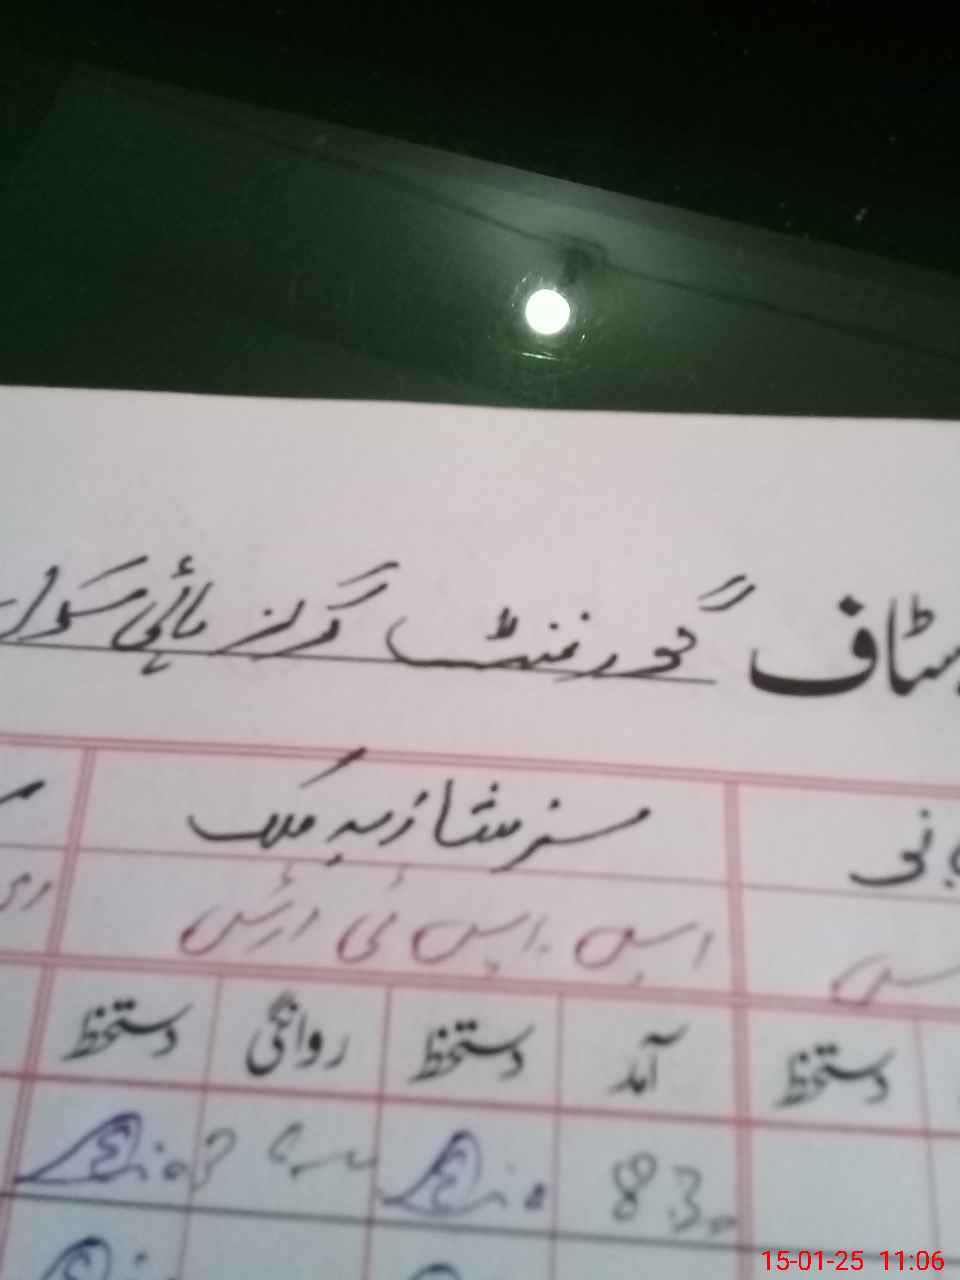 سٹاف گورنمنٹ گرلز ہائی سکول
مسز شازیہ ملک
ایس ایس ٹی آرٹس
آمد دستخط روانگی دستخط
دستخط
8.30
15-01-25 11:06